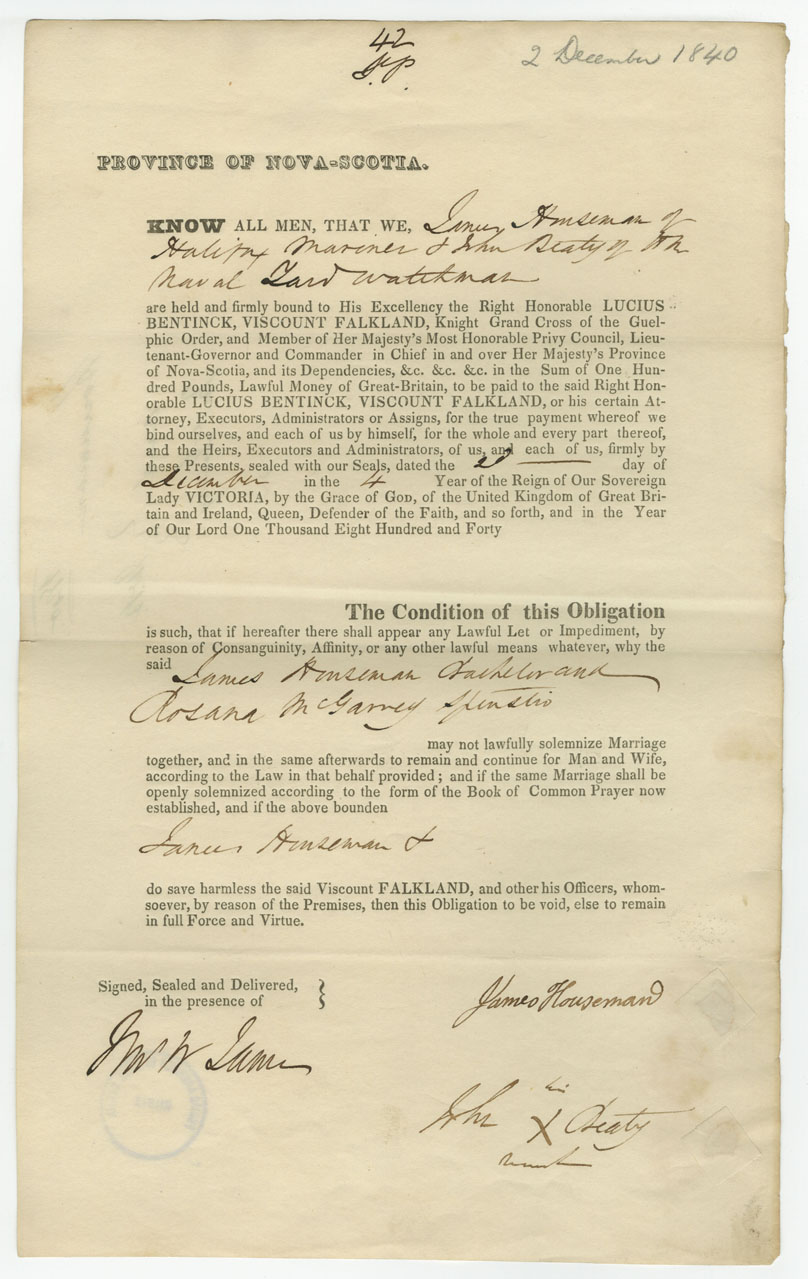 42
2 December 1840
PROVINCE OF NOVA-SCOTIA.
KNOW ALL MEN, THAT WE, James Houseman of
Halifax Mariner & John Beaty of the
Naval Yard Watchman
are held and firmly bound to His Excellency the Right Honorable LUCIUS
BENTINCK, VISCOUNT FALKLAND, Knight Grand Cross of the Guel-
phic Order, and Member of Her Majesty's Most Honorable Privy Council, Lieu-
tenant-Governor and Commander in Chief in and over Her Majesty's Province
of Nova-Scotia, and its Dependencies, &c. &c. &c. in the Sum of One Hun-
dred Pounds, Lawful Money of Great-Britain, to be paid to the said Right Hon-
orable LUCIUS BENTINCK, VISCOUNT FALKLAND, or his certain At-
torney, Executors, Administrators or Assigns, for the true payment whereof we
bind ourselves, and each of us by himself, for the whole and every part thereof,
and the Heirs, Executors and Administrators, of us, and each of us, firmly by
these Presents, sealed with our Seals, dated the 2d day of
December in the 4 Year of the Reign of Our Sovereign
Lady VICTORIA, by the Grace of GOD, of the United Kingdom of Great Bri-
tain and Ireland, Queen, Defender of the Faith, and so forth, and in the Year
of Our Lord One Thousand Eight Hundred and Forty
The Condition of this Obligation
is such, that if hereafter there shall appear any Lawful Let or Impediment, by
reason of Consanguinity, Affinity, or any other lawful means whatever, why the
said James Houseman Bachelor and
Rosana McGarvey Spinster
may not lawfully solemnize Marriage
together, and in the same afterwards to remain and continue for Man and Wife,
according to the Law in that behalf provided; and if the same Marriage shall be
openly solemnized according to the form of the Book of Common Prayer now
established, and if the above bounden
James Houseman &
do save harmless the said Viscount FALKLAND, and other his Officers, whom-
soever, by reason of the Premises, then this Obligation to be void, else to remain
in full Force and Virtue.
Signed, Sealed and Delivered,
in the presence of
James Houseman
W James
his
John X Beaty
mark